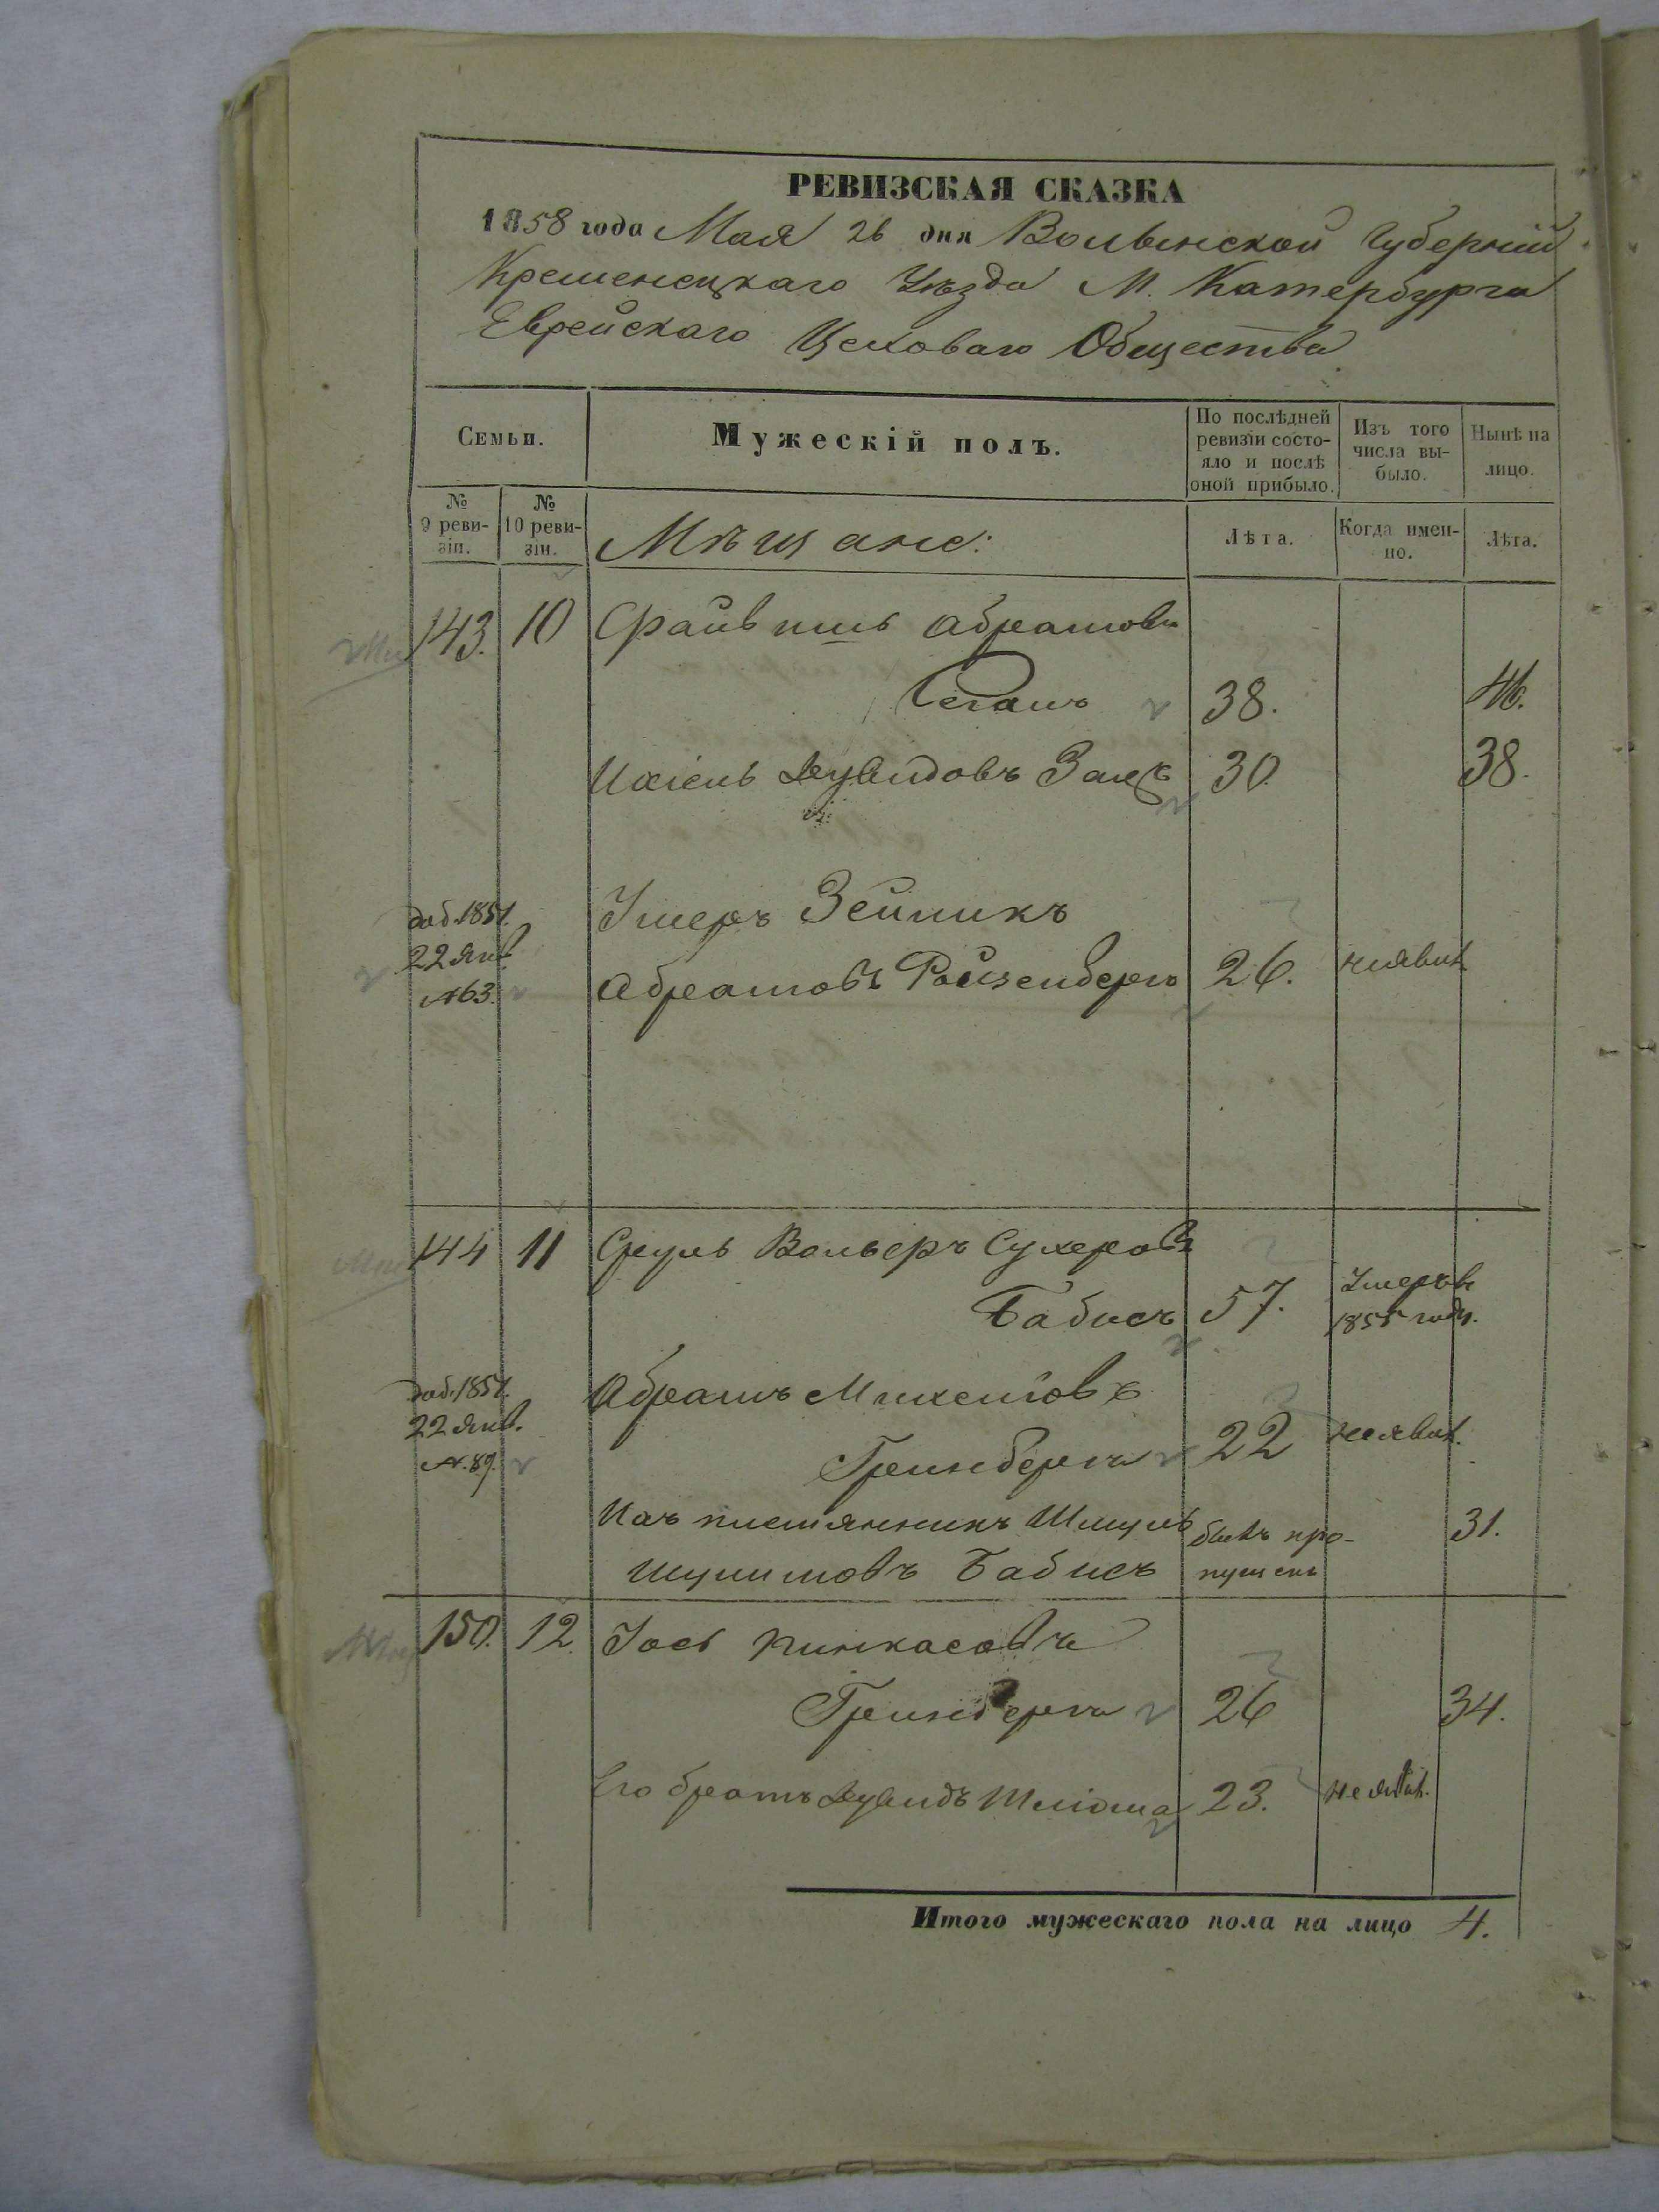 РЕВИЗСКАЯ СКАЗКА
1858 года Мая 26 дня Волынской Губерніи
Кременецкаго Уѣзда М. Катербурга
Еврейскаго Цеховаго Общества
Семьи.
Мужескій полъ.
По послѣдней ревизіи состо-
яло и послѣ
оной прибыло.
Изъ того
числа вы-
было.
Нынѣ на
лицо.
№
9 реви-
зіи.
№
10 реви-
зіи.
Мѣщане:
Лѣта.
Когда имен-
но.
Лѣта.
143. 10 Файвишъ Абрамовъ
38. 46.
Ихіель Дувидовъ 30 38.
доб. 1851.
22 Янв.
№ 63.
Зейликъ
Абрамовъ Ройзенбергъ 26. неявил.
144 11 Сруль Вольверъ Сухеровъ
Бабисъ 57. Умеръ въ
1855 году.
доб. 1851.
22 Янв.
№. 89.
Абрамъ
Гринбергъ 22 неявил.
Ихъ племянникъ Шмуль былъ про- 31.
Бабисъ пущенъ
150. 12. Іось Пинкасовъ
Гринбергъ 26 34.
Его братъ Дувидъ Шліома 23. неявил.
Итого мужескаго пола на лицо 4.